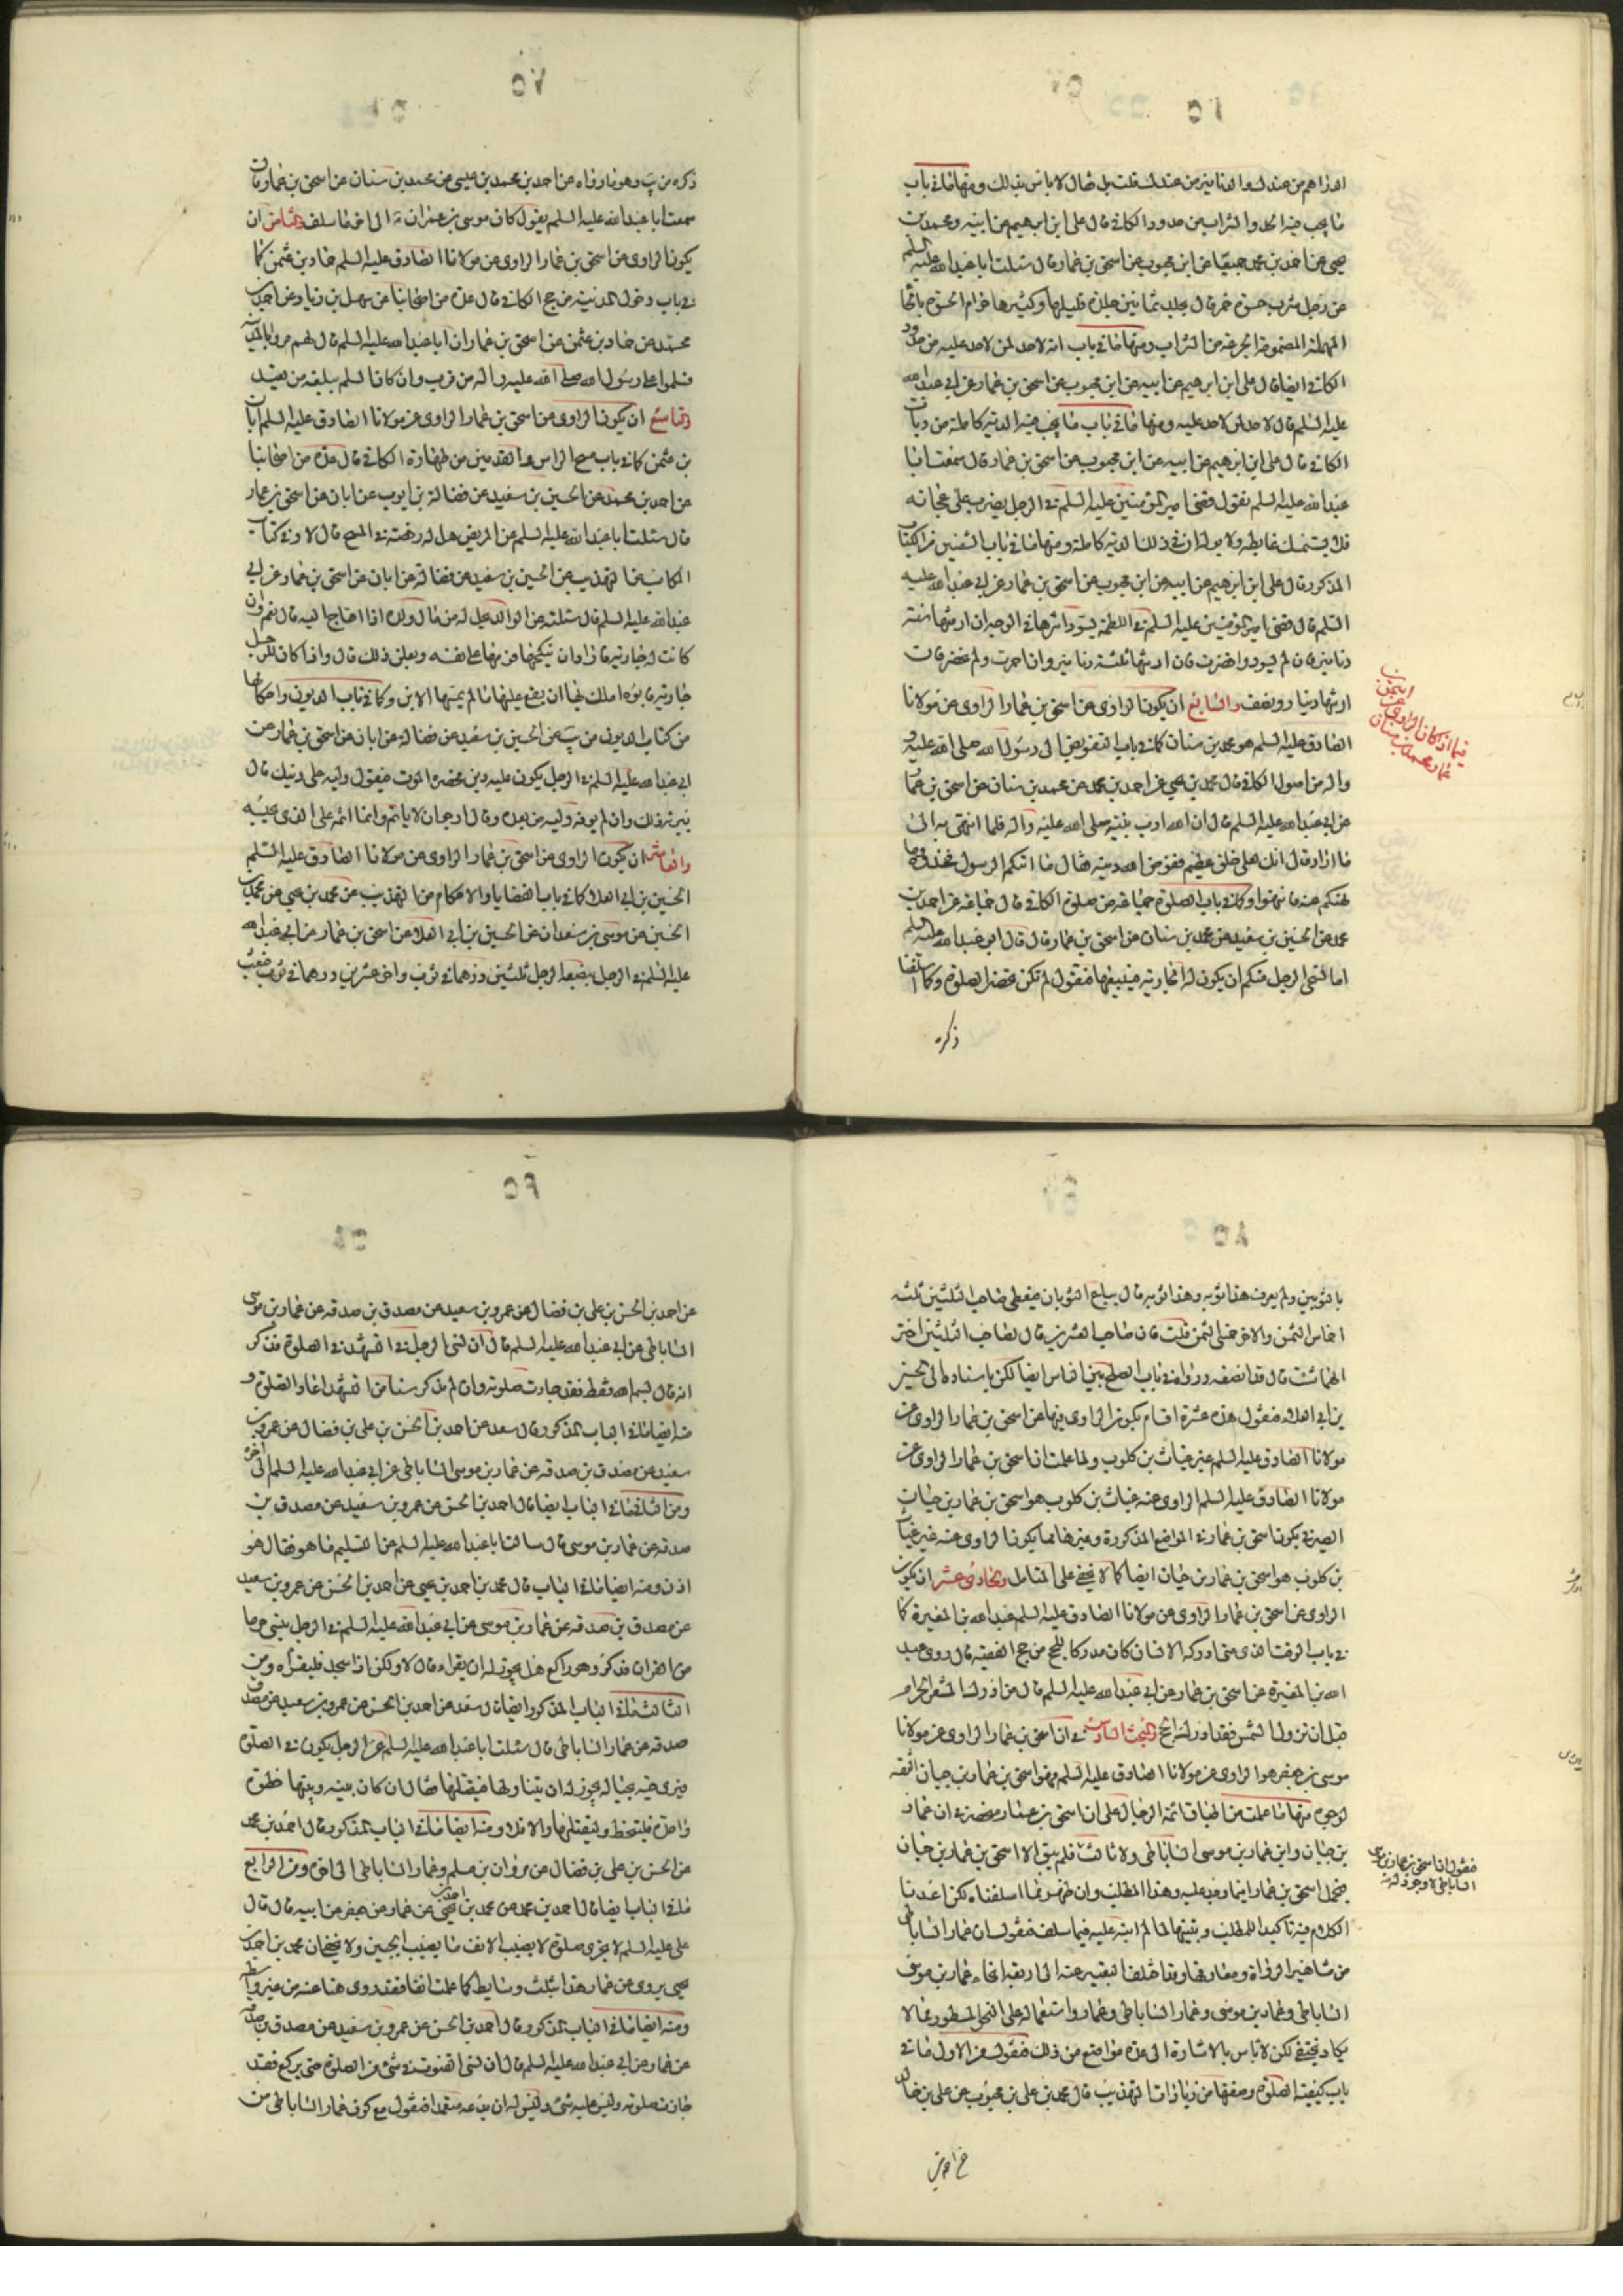 الدراهم من عندك والدنانير من عندك قلت بلى فقال لا باس بذلك ومنها ما في باب
ما يجب فيه الحد والشراب من حدود الكافي قال علي ابن ابرهيم عن ابيه ومحمد بن
يحيى عن احمد بن محمد جميعا عن ابن محبوب عن اسحق بن عمار قال سئلت ابا عبد الله عليه السلم
عن رجل شرب حسوة خمر قال يجلد ثمانين جلدة قليلها وكثيرها حرام الحسوة بالحاء
المهملة المضمومة الجرعة من الشراب ومنها ما في باب انه لا حد لمن لا حد عليه من حدود
الكافي ايضا قال علي ابن ابرهيم عن ابيه عن ابن محبوب عن اسحق بن عمار عن ابي عبد الله
عليه السلم قال لا حد لمن لا حد عليه ومنها ما في باب ما يجب فيه الدية كاملة من ديات
الكافي قال علي ابن ابرهيم عن ابيه عن ابن محبوب عن اسحق بن عمار قال سمعت ابا
عبد الله عليه السلم يقول قضى امير المؤمنين عليه السلم في الرجل يضرب على عجانه
فلا يستمسك غايطه ولا بوله ان في ذلك الدية كاملة ومنها ما في باب الشفتين من الكتاب
المذكور قال علي ابن ابرهيم عن ابيه عن ابن محبوب عن اسحق بن عمار عن ابي عبد الله عليه
السلم قال قضى امير المؤمنين عليه السلم في اللطمة يسود اثرها في الوجه ان ارشها ستة
دنانير فان لم تسود واخضرت فان ارشها ثلثة دنانير وان احمرت ولم تخضر فان
ارشها دينار ونصف والسابع ان يكون الراوى عن اسحق بن عمار الراوى عن مولانا
الصادق عليه السلم هو محمد بن سنان كما في باب التفويض الى رسول الله صلى الله عليه و
واله من اصول الكافي قال محمد بن يحيى عن احمد بن محمد عن محمد بن سنان عن اسحق بن عمار
عن ابي عبد الله عليه السلم قال ان الله ادب نبيه صلى الله عليه واله فلما انتهى به الى
ما اراد قال انك لعلى خلق عظيم ففوض اليه دينه فقال ما اتيكم الرسول فخذوه وما
نهيكم عنه فانتهوا وكما في باب الصلوة جماعة من صلوة الكافي قال جماعة عن احمد بن
محمد عن الحسين بن سعيد عن محمد بن سنان عن اسحق بن عمار قال قال ابو عبد الله عليه السلم
اما يستحي الرجل منكم ان يكون له الجارية فيبيعها فتقول لم تكن تحضر الصلوة وكما سلفنا
ذكره
فيما اذا كان الراوى عن اسحق بن
عمار محمد بن سنان
ذكره من يب وهو ما رواه عن احمد بن محمد بن عيسى عن محمد بن سنان عن اسحق بن عمار قال
سمعت ابا عبد الله عليه السلم يقول كان موسى بن عمران ع الى اخر ما سلف والثامن ان
يكون الراوى عن اسحق بن عمار الراوى عن مولانا الصادق عليه السلم حماد بن عثمن كما
في باب دخول المدينة من حج الكافي قال عدة من اصحابنا عن سهل بن زياد وعن احمد بن
محمد عن حماد بن عثمن عن اسحق بن عمار ان ابا عبد الله عليه السلم قال لهم مروا بالمدينة
فسلموا على رسول الله صلى الله عليه واله من قرب وان كان السلم يبلغه من بعيد
والتاسع ان يكون الراوى عن اسحق بن عمار الراوى عن مولانا الصادق عليه السلم ابان
بن عثمن كما في باب مسح الراس والقدمين من طهارة الكافي قال عدة من اصحابنا
عن احمد بن محمد عن الحسين بن سعيد عن فضالة بن ايوب عن ابان عن اسحق بن عمار
قال سئلت ابا عبد الله عليه السلم عن المريض هل له رخصة في المسح قال لا وفي كتاب
المكاسب من التهذيب عن الحسين بن سعيد عن فضالة عن ابان عن اسحق بن عمار عن ابي
عبد الله عليه السلم قال سئلته عن الوالد يحل له من مال ولده اذا احتاج اليه قال نعم وان
كانت له جارية فاراد ان ينكحها قومها على نفسه ويعلن ذلك قال واذا كان للرجل
جارية فابوه املك بها ان يقع عليها ما لم يمسها الابن وكما في باب الديون واحكامها
من كتاب الديون من يب عن الحسين بن سعيد عن فضالة عن ابان عن اسحق بن عمار عن
ابي عبد الله عليه السلم في الرجل يكون عليه دين فحضره الموت فيقول وليه على دينك قال
يبرئه ذلك وان لم يوفه وليه من بعده وقال ارجو ان لا ياثم وانما اثمه على الذى يحبسه
والعاشر ان يكون الراوى عن اسحق بن عمار الراوى عن مولانا الصادق عليه السلم
الحسين بن ابي العلا كما في باب القضايا والاحكام من التهذيب عن محمد بن يحيى عن محمد بن
الحسين عن موسى بن سعدان عن الحسين بن ابي العلا عن اسحق بن عمار عن ابي عبد الله
عليه السلم في الرجل يبضعه الرجل ثلثين درهما في ثوب واخر عشرين درهما في ثوب فبعث
بالثوبين ولم يعرف هذا ثوبه وهذا ثوبه قال يباع الثوبان فيعطى صاحب الثلثين ثلثة
اخماس الثمن والاخر خمسي الثمن قلت فان صاحب العشرين قال لصاحب الثلثين اختر
ايهما شئت قال قد انصفه ورواه في باب الصلح بين الناس ايضا لكن باسناده الى الحسين
بن ابي العلا فنقول هذه عشرة اقسام يكون الراوى فيها عن اسحق بن عمار الراوى عن
مولانا الصادق عليه السلم غير غياث بن كلوب ولما علمت ان اسحق بن عمار الراوى عن
مولانا الصادق عليه السلم الراوى عنه غياث بن كلوب هو اسحق بن عمار بن حيان
الصيرفي يكون اسحق بن عمار في المواضع المذكورة وغيرها مما يكون الراوى عنه غير غياث
بن كلوب هو اسحق بن عمار بن حيان ايضا كما لا يخفى على المتامل والحادى عشر ان يكون
الراوى عن اسحق بن عمار الراوى عن مولانا الصادق عليه السلم عبد الله بن المغيرة كما
في باب الوقت الذى متى ادركه الانسان كان مدركا للحج من حج الفقيه قال روى عبد
الله بن المغيرة عن اسحق بن عمار عن ابي عبد الله عليه السلم قال من ادرك المشعر الحرام
قبل ان تزول الشمس فقد ادرك الحج والمبحث السادس في ان اسحق بن عمار الراوى عن مولانا
موسى بن جعفر هو الراوى عن مولانا الصادق عليه السلم وهو اسحق بن عمار بن حيان الثقة
لوجوه منها ما علمت من اطباق ائمة الرجال على ان اسحق بن عمار منحصر في ابن عمار
بن حيان وابن عمار بن موسى الساباطي ولا ثالث فلم يبق الا اسحق بن عمار بن حيان
فيحمل اسحق بن عمار اينما وجد عليه وهذا المطلب وان ظهر مما اسلفناه لكن اعدنا
الكلام فيه تاكيدا للمطلب وتنبيها لما لم انبه عليه فيما سلف فنقول ان عمار الساباطي
من مشاهير الرواة ومعاريفها وربما اختلف التعبير عنه الى اربعة انحاء عمار بن موسى
الساباطي وعمار بن موسى وعمار الساباطي وعمار واستعماله على النحو المسطور مما لا
يكاد يختفي لكن لا باس بالاشارة الى عدة مواضع من ذلك فنقول من الاول ما في
باب كيفية الصلوة وصفتها من زيادات التهذيب قال محمد بن علي بن محبوب عن علي بن خالد
فنقول ان اسحق بن عمار بن موسى
الساباطي لا وجود له
عن احمد بن الحسن بن علي بن فضال عن عمرو بن سعيد عن مصدق بن صدقه عن عمار بن موسى
الساباطي عن ابي عبد الله عليه السلم قال ان نسى الرجل في التشهد في الصلوة فذكر
انه قال بسم الله فقط فقد جازت صلوته وان لم يذكر شيئا من التشهد اعاد الصلوة و
منه ايضا ما في الباب المذكور قال سعد عن احمد بن الحسن بن علي بن فضال عن عمرو بن
سعيد عن مصدق بن صدقه عن عمار بن موسى الساباطي عن ابي عبد الله عليه السلم الى اخره
ومن الثاني ما في الباب ايضا قال احمد بن الحسن عن عمرو بن سعيد عن مصدق بن
صدقه عن عمار بن موسى قال سالت ابا عبد الله عليه السلم عن التسليم ما هو فقال هو
اذن ومنه ايضا ما في الباب قال محمد بن احمد بن يحيى عن احمد بن الحسن عن عمرو بن سعيد
عن مصدق بن صدقه عن عمار بن موسى عن ابي عبد الله عليه السلم في الرجل ينسى حرفا
من القران فذكر وهو راكع هل يجوز له ان يقراه قال لا ولكن اذا سجد فليقراه ومن
الثالث ما في الباب المذكور ايضا قال سعد عن احمد بن الحسن عن عمرو بن سعيد عن مصدق بن
صدقه عن عمار الساباطي قال سئلت ابا عبد الله عليه السلم عن الرجل يكون في الصلوة
فيرى حية بحياله يجوز له ان يتناولها فيقتلها فقال ان كان بينه وبينها خطوة
واحدة فليتخط وليقتلها والا فلا ومنه ايضا ما في الباب المذكور قال احمد بن محمد
عن الحسن بن علي بن فضال عن مروان بن مسلم وعمار الساباطي الى اخره ومن الرابع
ما في الباب ايضا قال احمد بن محمد عن محمد بن يحيى عن عمار عن جعفر عن ابيه قال قال
علي عليه السلم لا يجزى صلوة لا يصيب الانف ما يصيب الجبين ولا يخفى ان محمد بن احمد بن
يحيى يروى عن عمار هذا بثلث وسايط كما علمت انفا فقد روى هنا عنه من غير واسطه
ومنه ايضا ما في الباب المذكور قال احمد بن الحسن عن عمرو بن سعيد عن مصدق بن صدقه
عن عمار عن ابي عبد الله عليه السلم قال ان نسى القنوت في شئ من الصلوة حتى يركع فقد
جازت صلوته وليس عليه شئ وليس له ان يدعه متعمدا فنقول مع كون عمار الساباطي من